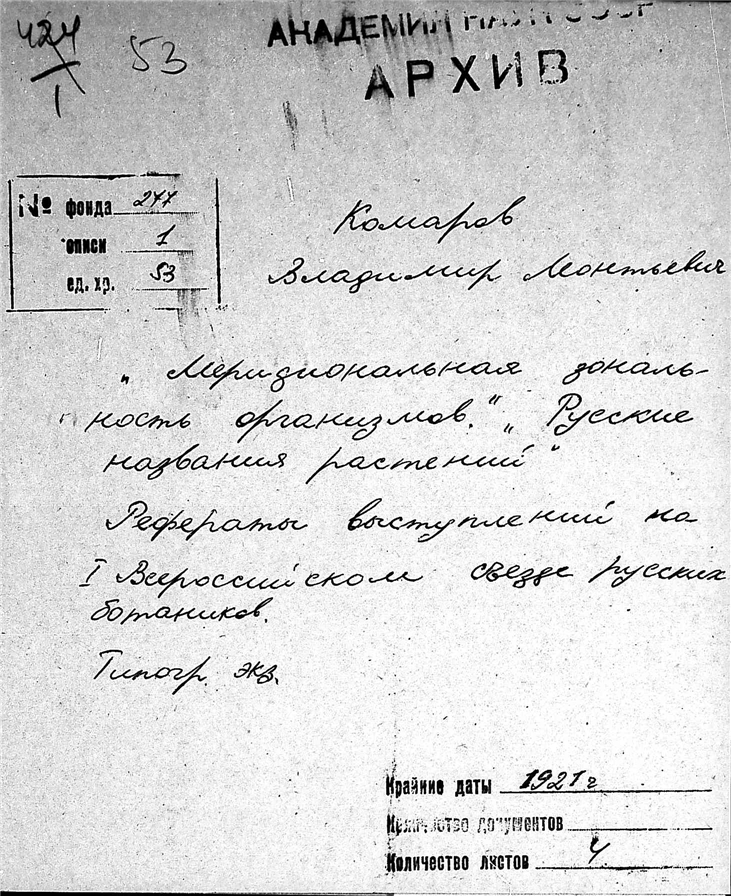 424
1
53
АКАДЕМИЯ НАУК СССР
АРХИВ
№ фонда 277
описи 1
ед. хр. 53
Комаров
Владимир Леонтьевич
„Меридиональная зональ-
ность организмов." „Русские
названия растений"
Рефераты выступлений на
I Всероссийском съезде русских
ботаников.
Типогр. экз.
Крайние даты 1921 г
Количество документов
Количество листов 4